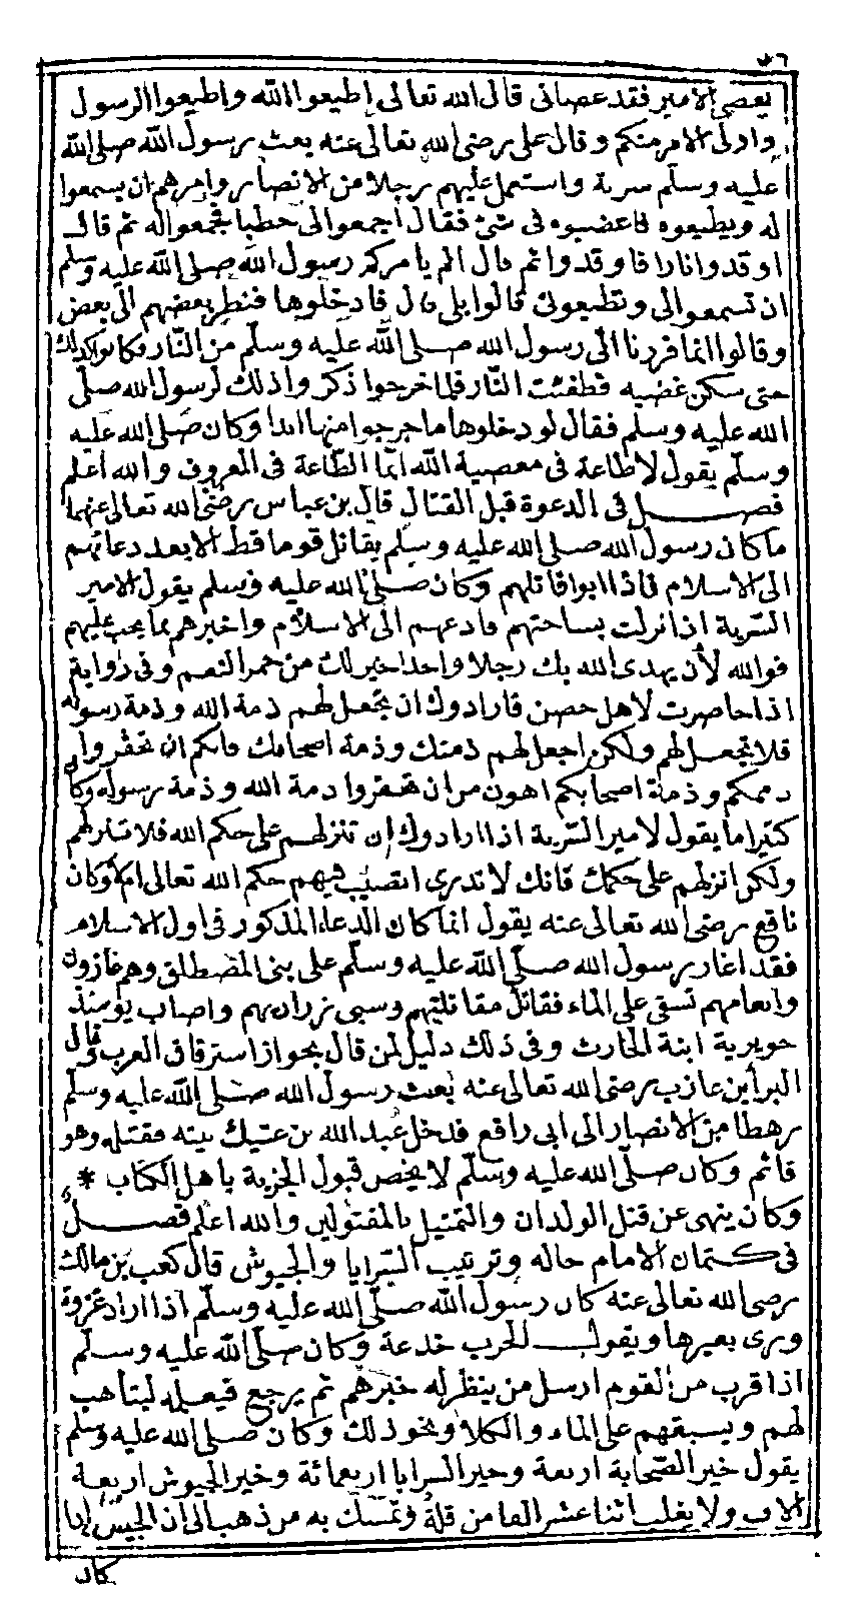 ٥٦
يعصى الامير فقد عصانى قال الله تعالى اطيعوا الله واطيعوا الرسول
واولى الامر منكم وقال على رضى الله تعالى عنه بعث رسول الله صلى الله
عليه وسلم سرية واستعمل عليهم رجلا من الانصار وامرهم ان يسمعوا
له ويطيعوه فاغضبوه فى شئ فقال اجمعوا لى حطبا فجمعوا له ثم قال
اوقدوا نارا فاوقدوا ثم قال الم يامركم رسول الله صلى الله عليه وسلم
ان تسمعوا لى وتطيعونى قالوا بلى قال فادخلوها فنظر بعضهم الى بعض
وقالوا انما فررنا الى رسول الله صلى الله عليه وسلم من النار وكانوا كذلك
حتى سكن غضبه فطفئت النار فلما خرجوا ذكروا ذلك لرسول الله صلى
الله عليه وسلم فقال لو دخلوها ما خرجوا منها ابدا وكان صلى الله عليه
وسلم يقول لا طاعة فى معصية الله انما الطاعة فى المعروف والله اعلم
فصل فى الدعوة قبل القتال قال بن عباس رضى الله تعالى عنهما
ما كان رسول الله صلى الله عليه وسلم يقاتل قوما قط الا بعد دعائهم
الى الاسلام فاذا ابوا قاتلهم وكان صلى الله عليه وسلم يقول لامير
السرية اذا نزلت بساحتهم فادعهم الى الاسلام واخبرهم بما يجب عليهم
فوالله لأن يهدى الله بك رجلا واحدا خير لك من حمر النعم وفى رواية
اذا حاصرت لاهل حصن فارادوك ان تجعل لهم ذمة الله وذمة رسوله
فلا تجعل لهم ولكن اجعل لهم ذمتك وذمة اصحابك فانكم ان تخفروا
ذممكم وذمة اصحابكم اهون من ان تخفروا ذمة الله وذمة رسوله وكان
كثيرا ما يقول لامير السرية اذا ارادوك ان تنزلهم على حكم الله فلا تنزلهم
ولكن انزلهم على حكمك فانك لا تدرى اتصيب فيهم حكم الله تعالى ام لا وكان
نافع رضى الله تعالى عنه يقول انما كان الدعاء المذكور فى اول الاسلام
فقد اغار رسول الله صلى الله عليه وسلم على بنى المصطلق وهم غازون
وانعامهم تسقى على الماء فقاتل مقاتليهم وسبى ذراريهم واصاب يومئذ
جويرية ابنة الحارث وفى ذلك دليل لمن قال بجواز استرقاق العرب وقال
البرأ بن عازب رضى الله تعالى عنه بعث رسول الله صلى الله عليه وسلم
رهطا من الانصار الى ابى رافع فدخل عبد الله بن عتيك بيته فقتله وهو
قائم وكان صلى الله عليه وسلم لا يخص قبول الجزية باهل الكتاب *
وكان ينهى عن قتل الولدان والتمثيل بالمقتولين والله اعلم فصل
فى كتمان الامام حاله وترتيب السرايا والجيوش قال كعب بن مالك
رضى الله تعالى عنه كان رسول الله صلى الله عليه وسلم اذا اراد غزوة
ورى بغيرها ويقول الحرب خدعة وكان صلى الله عليه وسلم
اذا قرب من القوم ارسل من ينظر له خبرهم ثم يرجع فيعلمه ليتأهب
لهم ويسبقهم على الماء والكلاء ونحو ذلك وكان صلى الله عليه وسلم
يقول خير الصحابة اربعة وخير السرايا اربعمائة وخير الجيوش اربعة
الاف ولا يغلب اثنا عشر الفا من قلة وتمسك به من ذهب الى ان الجيش اذا
كان